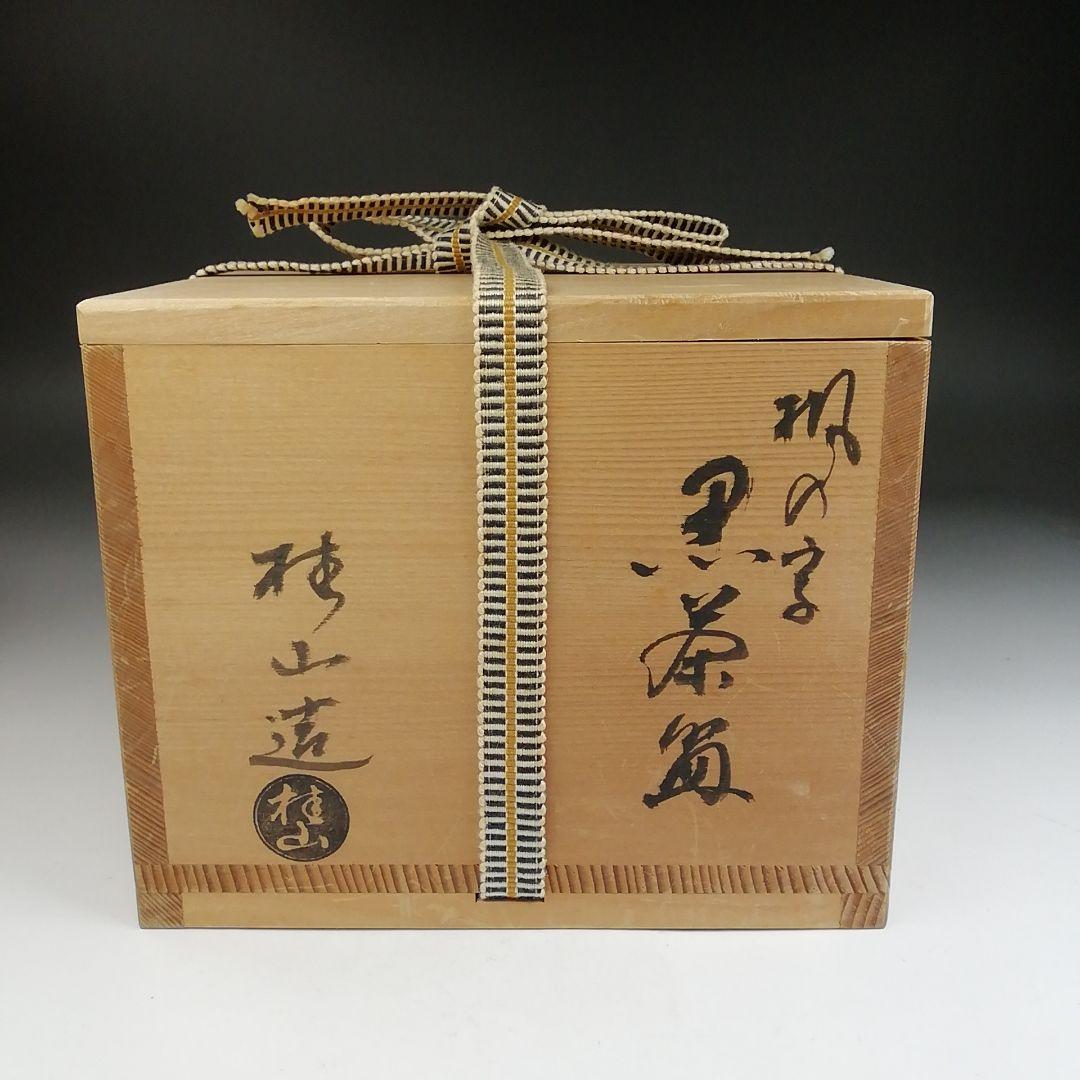 楓の字
黒茶盌
桂山造
桂山